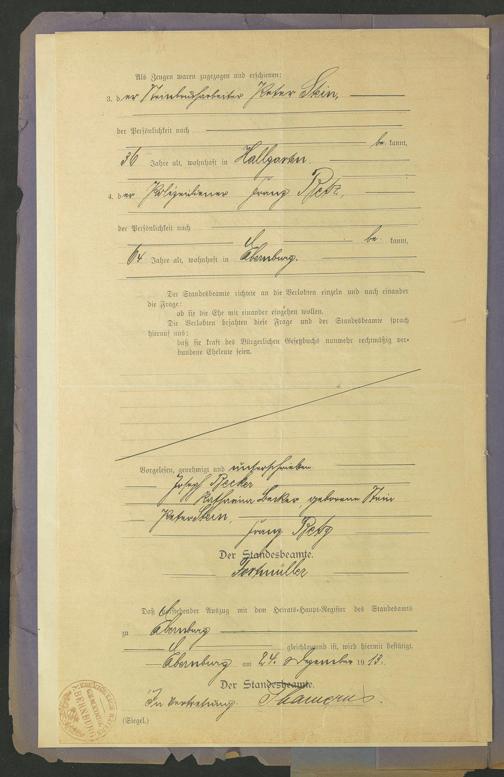 Als Zeugen waren zugezogen und erschienen:
3. der Steinbrucharbeiter Peter Stein,
der Persönlichkeit nach
be kannt,
36 Jahre alt, wohnhaft in Hallgarten.
4. der Polizeidiener Franz
der Persönlichkeit nach
be kannt,
64 Jahre alt, wohnhaft in Ebernburg.
Der Standesbeamte richtete an die Verlobten einzeln und nach einander
die Frage:
ob sie die Ehe mit einander eingehen wollen.
Die Verlobten bejahten diese Frage und der Standesbeamte sprach
hierauf aus:
daß sie kraft des Bürgerlichen Gesetzbuchs nunmehr rechtmäßig ver-
bundene Eheleute seien.
Vorgelesen, genehmigt und unterschrieben
Joseph Becker
Katharina Becker geborene Stein
Peter Stein,
Franz
Der Standesbeamte.
Daß vorstehender Auszug mit dem Heirats-Haupt-Register des Standesamts
zu Ebernburg
gleichlautend ist, wird hiermit bestätigt.
Ebernburg am 24. Dezember 1913.
Der Standesbeamte.
In Vertretung
(Siegel.)